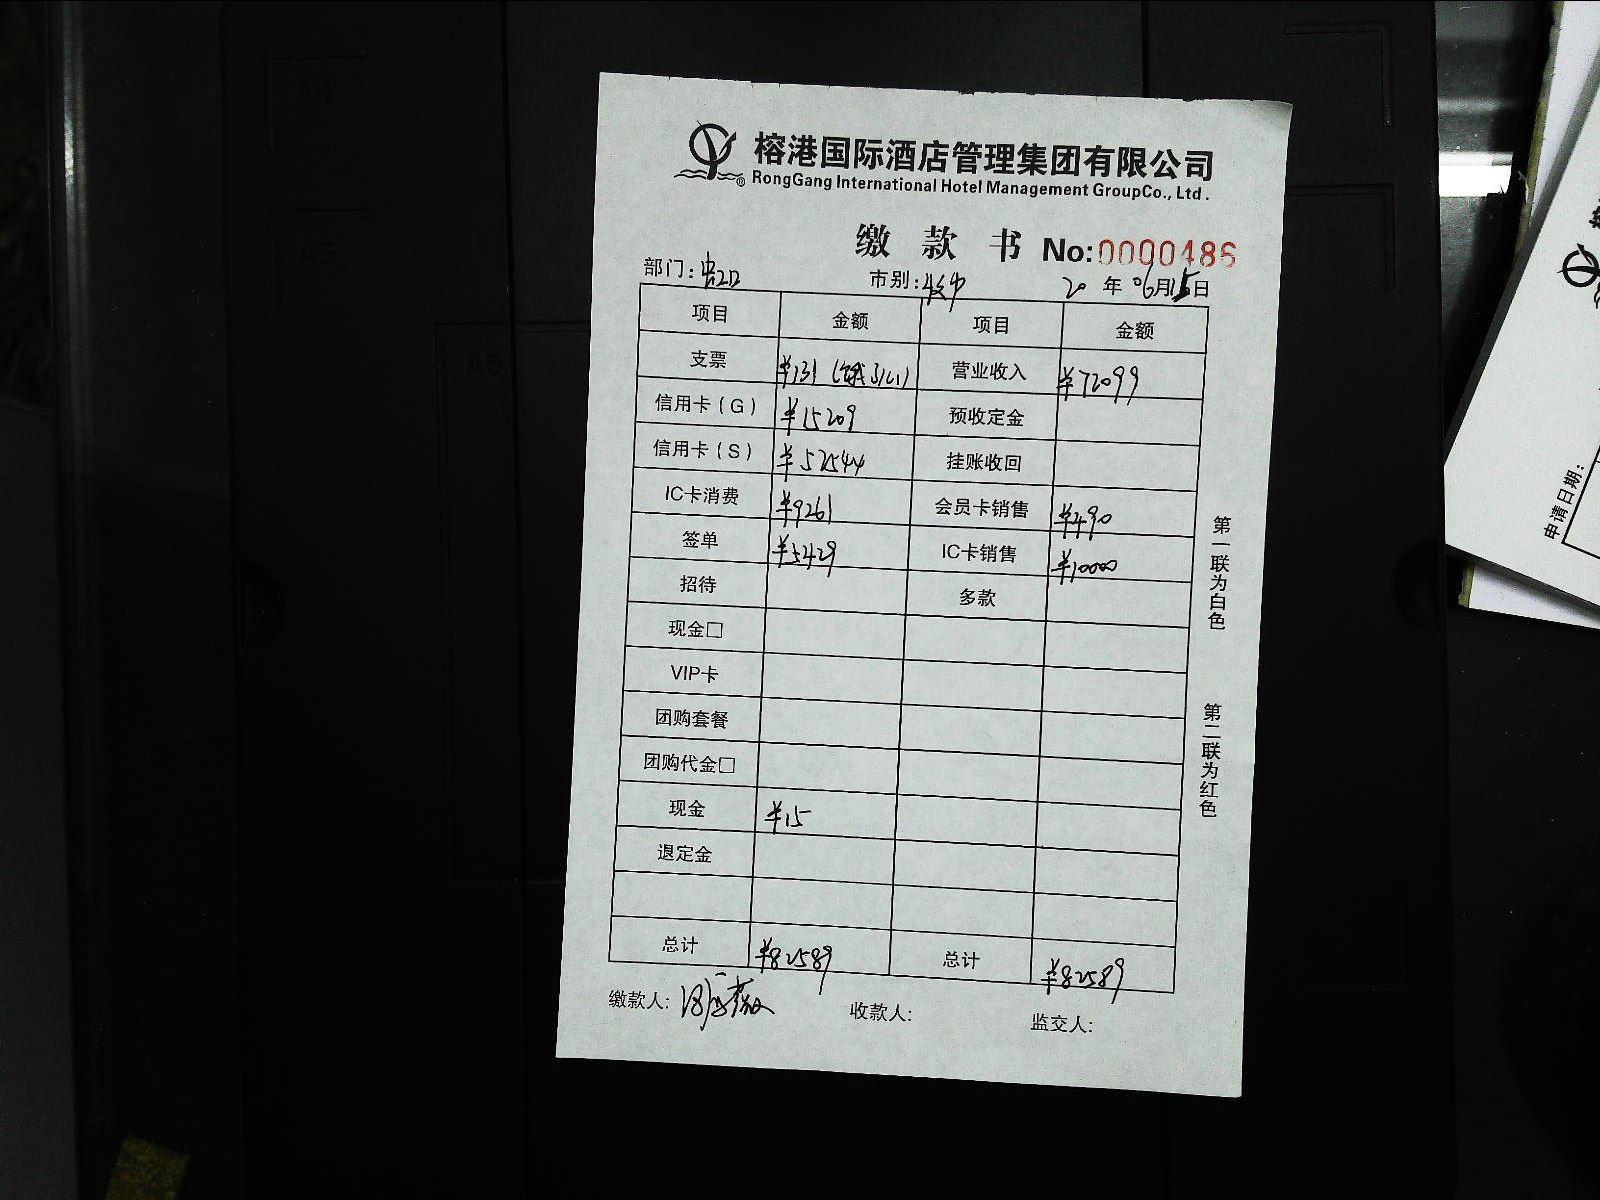 榕港国际酒店管理集团有限公司
RongGang International Hotel Management GroupCo., Ltd.
缴款书 No:0000486
部门:虹口 市别: 20年06月15日
项目 金额 项目 金额
支票 ¥131 营业收入 ¥72099
信用卡(G) ¥15209 预收定金
信用卡(S) ¥52544 挂账收回
IC卡消费 ¥9261 会员卡销售 ¥490
签单 ¥5429 IC卡销售 ¥10000
招待 多款
现金□
VIP卡
团购套餐
团购代金□
现金 ¥15
退定金
总计 ¥82589 总计 ¥82589
缴款人: 收款人: 监交人:
第一联为白色
第二联为红色
申请日期: